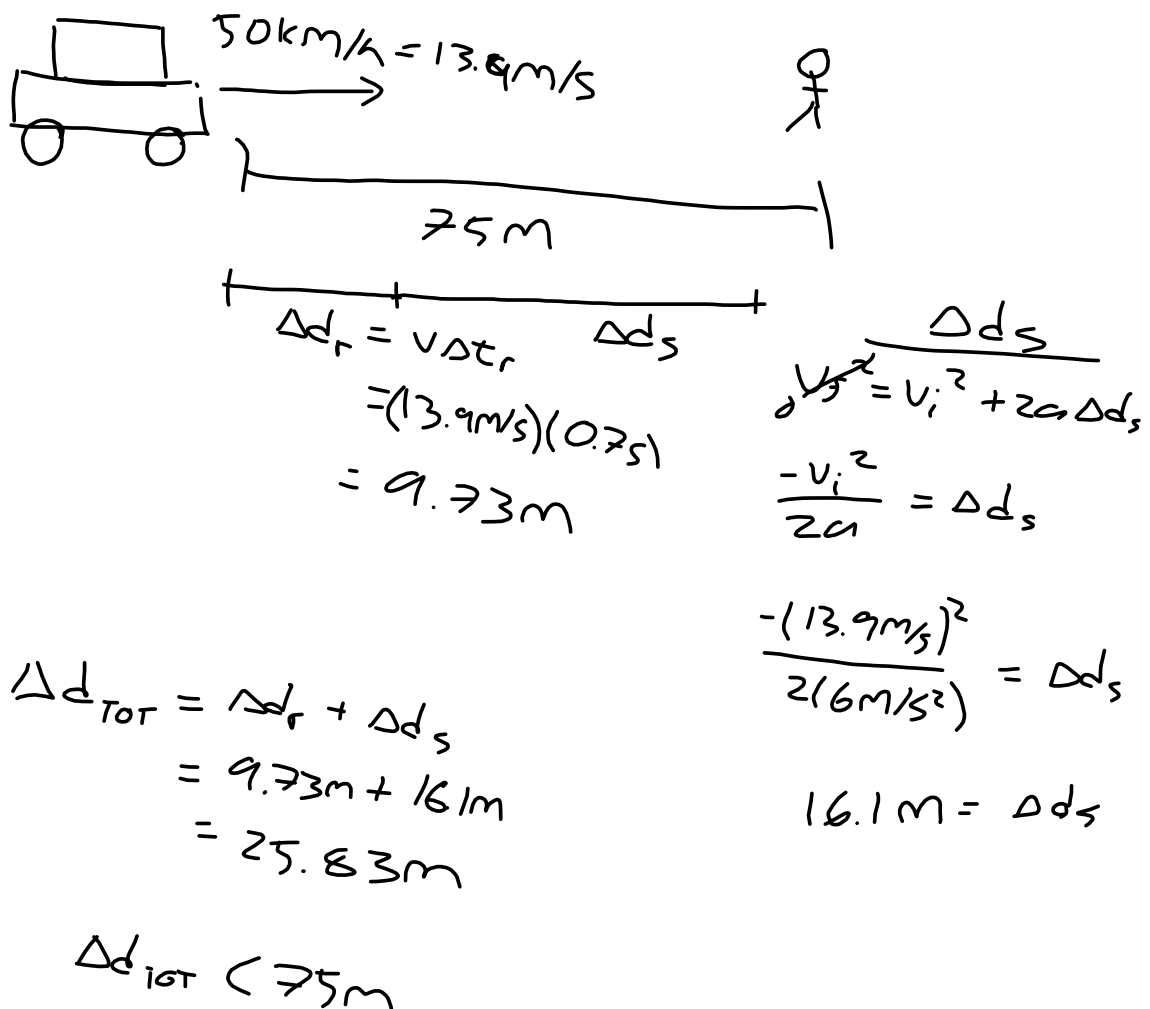 50km/h = 13.9m/s
75m
Δd_r = vΔt_r
Δd_s
=(13.9m/s)(0.7s)
= 9.73m
Δd_s
0 v_f² = v_i² + 2aΔd_s
-v_i²/2a = Δd_s
-(13.9m/s)²/2(6m/s²) = Δd_s
16.1m = Δd_s
Δd_TOT = Δd_r + Δd_s
= 9.73m + 16.1m
= 25.83m
Δd_TOT < 75m